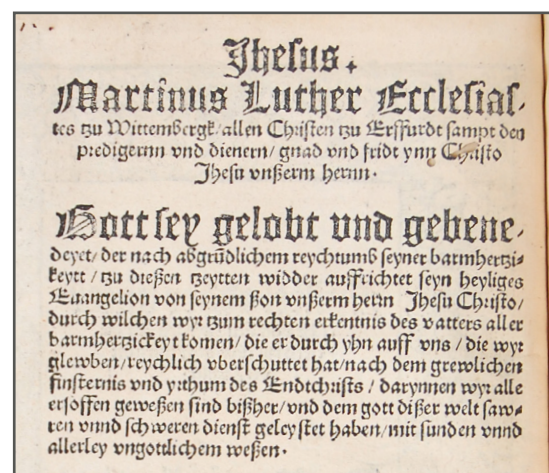 Jhesus.
Martinus Luther Ecclesias-
tes tzu Wittembergk/ allen Christen tzu Erffurdt sampt den
predigernn vnd dienern/ gnad vnd fridt ynn Christo
Jhesu vnßerm hernn.
Gott sey gelobt vnd gebene-
deyet/ der nach abgrũdlichem reychtumb seyner barmhertzi-
keytt/ tzu dießen tzeytten widder auffrichtet seyn heyliges
Euangelion von seynem ßon vnßerm hern Jhesu Christo/
durch wilchen wyr tzum rechten erkentnis des vatters aller
barmhertzickeyt komen/ die er durch yhn auff vns/ die wyr
glewben/ reychlich vberschuttet hat/ nach dem grewlichen
finsternis vnd yrthum des Endtchrists/ darynnen wyr alle
ersoffen geweßen sind bißher/ vnd dem gott dißer welt saw-
ren vnnd schweren dienst geleystet haben/ mit sunden vnnd
allerley vngottlichem weßen.